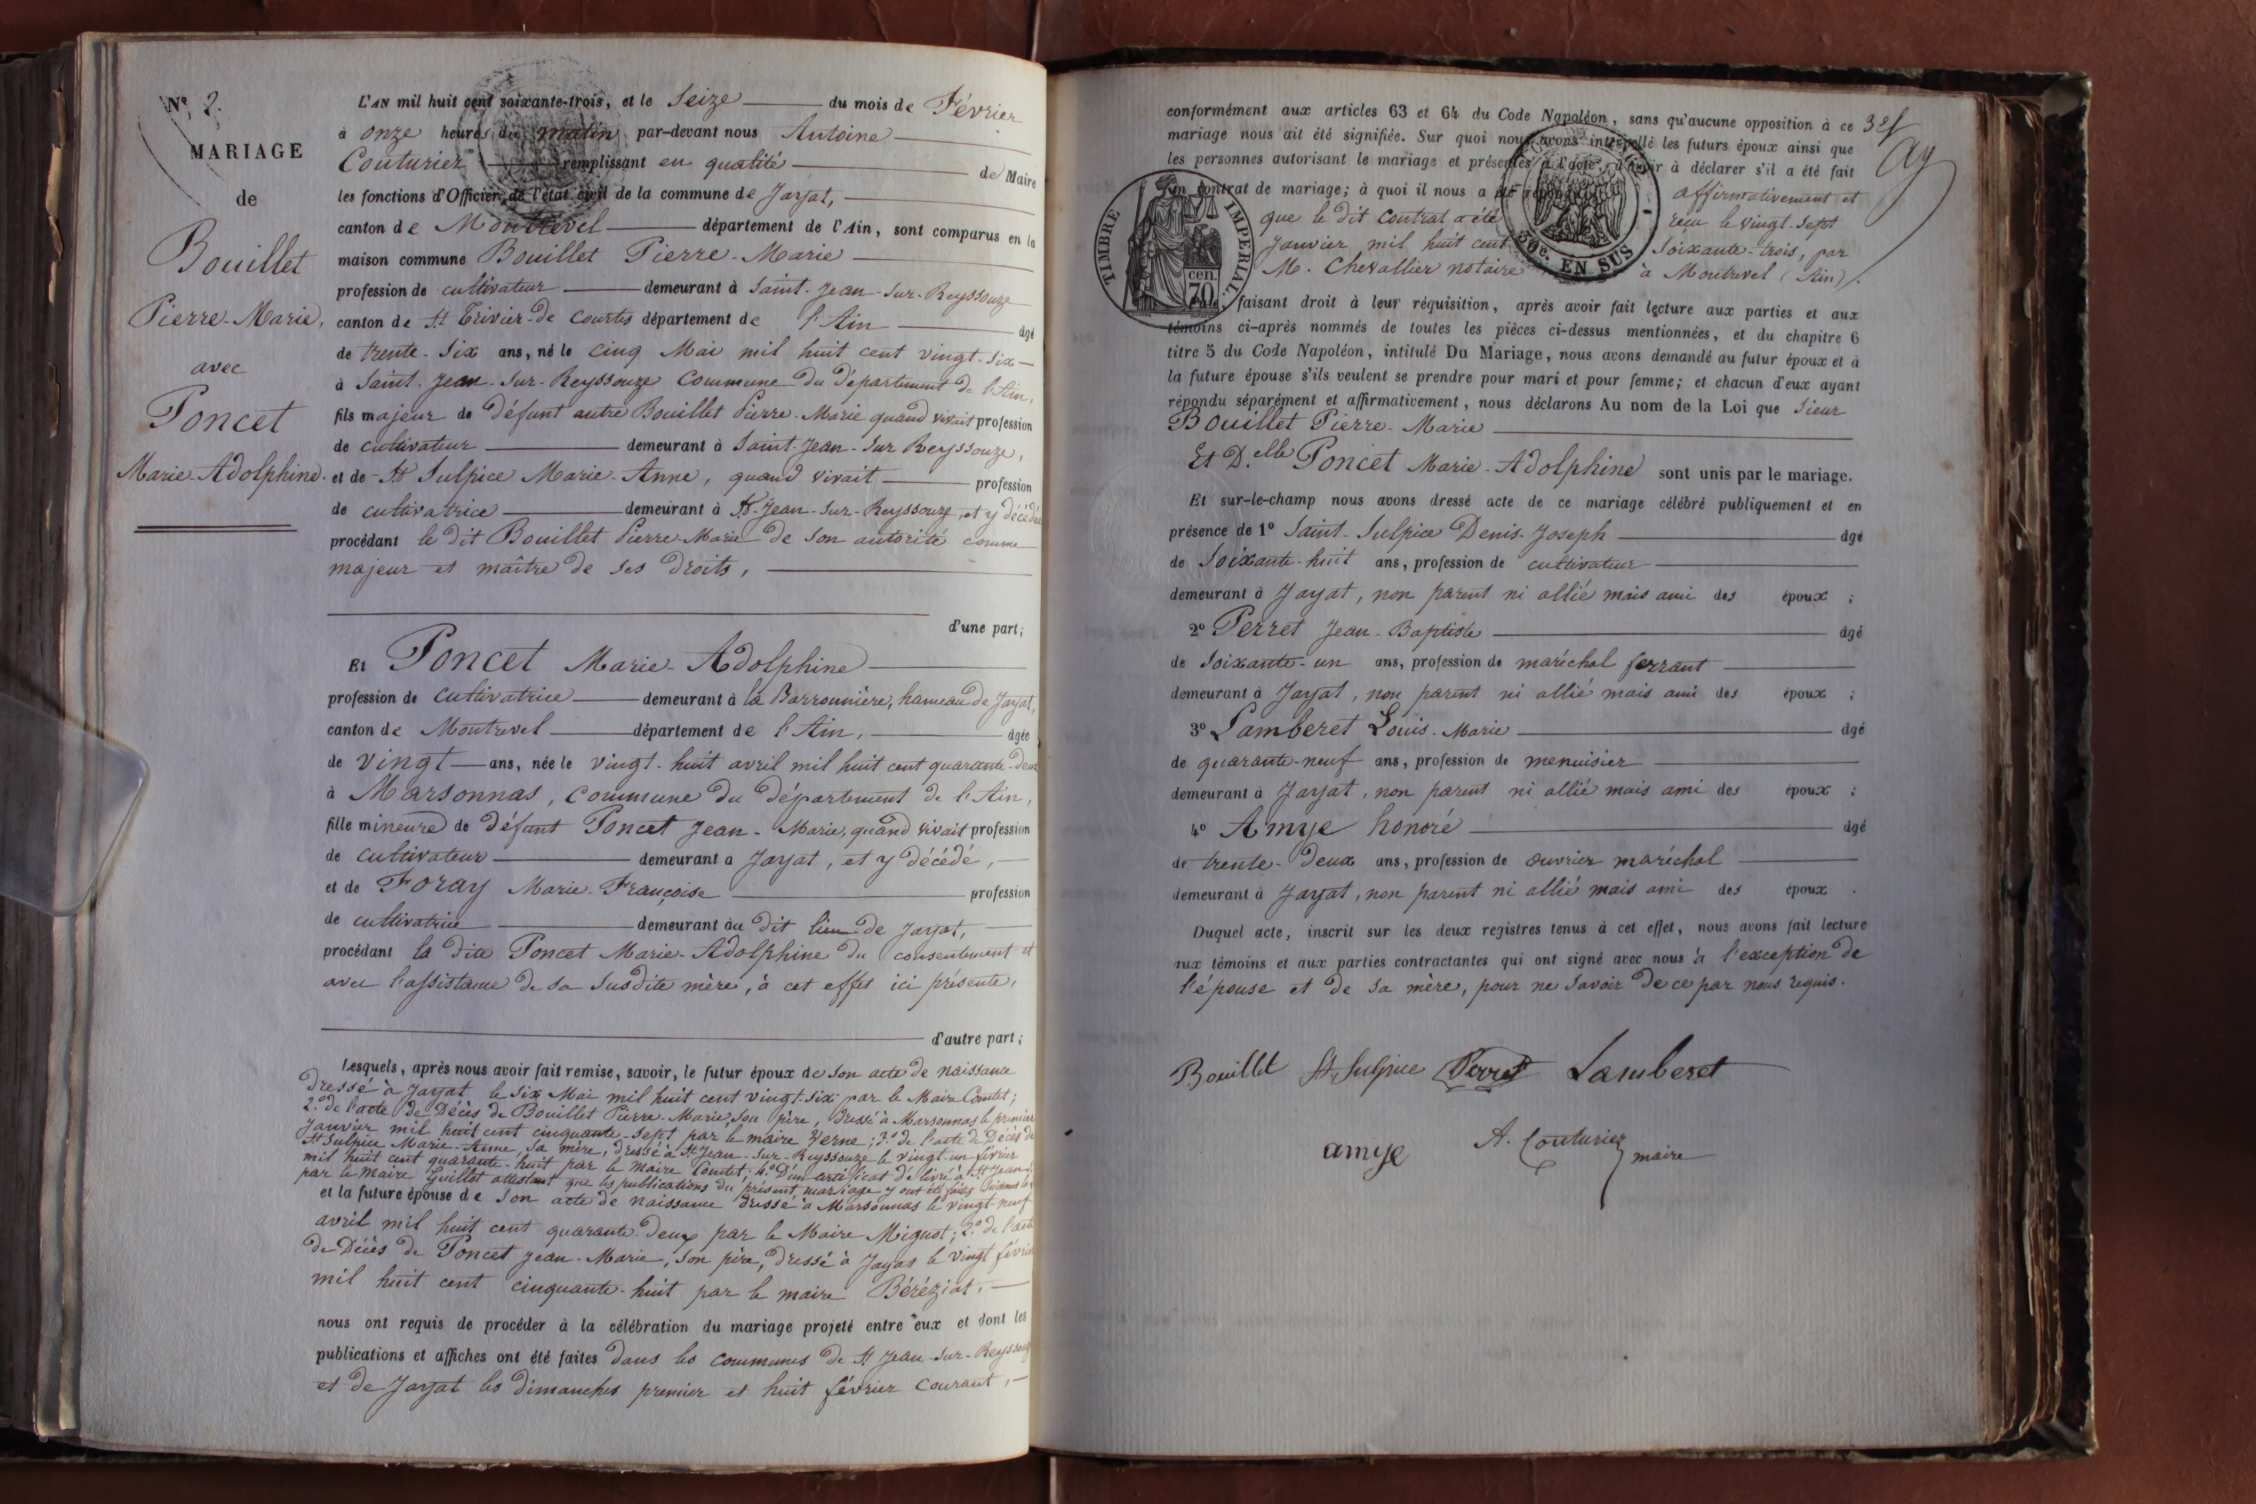 N° 2.
MARIAGE
de
Bouillet
Pierre-Marie,
avec
Poncet
Marie-Adolphine.
L'AN mil huit cent soixante-trois, et le Seize du mois de Février
à onze heures du matin par-devant nous Antoine
Couturier remplissant en qualité de Maire
les fonctions d'Officier de l'état civil de la commune de Jayat,
canton de Montrevel département de l'Ain, sont comparus en la
maison commune Bouillet Pierre-Marie
profession de cultivateur demeurant à Saint-Jean-sur-Reyssouze
canton de St Trivier-de Courtes département de l'Ain âgé
de trente-six ans, né le cinq Mai mil huit cent vingt-six
à Saint-Jean-sur-Reyssouze Commune du Département de l'Ain,
fils majeur de défunt autre Bouillet Pierre-Marie quand vivait profession
de cultivateur demeurant à Saint-Jean-sur Reyssouze,
et de St Sulpice Marie-Anne, quand vivait profession
de cultivatrice demeurant à St-Jean-sur-Reyssouze, et y décédée
procédant le dit Bouillet Pierre-Marie de son autorité comme
majeur et maître de ses droits,
d'une part;
Et Poncet Marie-Adolphine
profession de cultivatrice demeurant à la Barronnière, hameau de Jayat,
canton de Montrevel département de l'Ain, âgée
de vingt ans, née le vingt-huit avril mil huit cent quarante-deux
à Marsonnas, Commune du département de l'Ain,
fille mineure de défunt Poncet Jean-Marie, quand vivait profession
de cultivateur demeurant à Jayat, et y décédé,
et de Foray Marie-Françoise profession
de cultivatrice demeurant au dit lieu de Jayat,
procédant la dite Poncet Marie-Adolphine du consentement et
avec l'assistance de sa susdite mère, à cet effet ici présente,
d'autre part;
Lesquels, après nous avoir fait remise, savoir, le futur époux de son acte de naissance
dressé à Jayat le six Mai mil huit cent vingt-six par le Maire Comtet;
2° de l'acte de Décès de Bouillet Pierre-Marie, son père, dressé à Marsonnas le premier
Janvier mil huit cent cinquante-sept par le maire Verne; 3° de l'acte de Décès de
St Sulpice Marie-Anne, sa mère, dressé à St Jean-sur-Reyssouze le vingt-un février
mil huit cent quarante-huit par le Maire Comtet; 4° D'un certificat délivré à St Jean
par le Maire Guillot attestant que les publications du présent mariage y ont été faites
et la future épouse de son acte de naissance dressé à Marsonnas le vingt-neuf
avril mil huit cent quarante deux par le Maire Migust; 2° de l'acte
de Décès de Poncet Jean-Marie, son père, dressé à Jayat le vingt février
mil huit cent cinquante-huit par le maire Béréziat,
nous ont requis de procéder à la célébration du mariage projeté entre eux et dont les
publications et affiches ont été faites dans les communes de St Jean-sur-Reyssouze
et de Jayat les dimanches premier et huit février courant,
conformément aux articles 63 et 64 du Code Napoléon, sans qu'aucune opposition à ce
mariage nous ait été signifiée. Sur quoi nous avons interpellé les futurs époux ainsi que
les personnes autorisant le mariage et présentes à l'acte, d'avoir à déclarer s'il a été fait
un contrat de mariage; à quoi il nous a été répondu affirmativement et
que le dit contrat a été reçu le vingt-sept
Janvier mil huit cent soixante-trois, par
M. Chevallier notaire à Montrevel (Ain).
TIMBRE IMPERIAL.
70 cen.
50c. EN SUS
faisant droit à leur réquisition, après avoir fait lecture aux parties et aux
témoins ci-après nommés de toutes les pièces ci-dessus mentionnées, et du chapitre 6
titre 5 du Code Napoléon, intitulé Du Mariage, nous avons demandé au futur époux et à
la future épouse s'ils veulent se prendre pour mari et pour femme; et chacun d'eux ayant
répondu séparément et affirmativement, nous déclarons Au nom de la Loi que Sieur
Bouillet Pierre-Marie
Et D.elle Poncet Marie-Adolphine sont unis par le mariage.
Et sur-le-champ nous avons dressé acte de ce mariage célébré publiquement et en
présence de 1° Saint-Sulpice Denis-Joseph âgé
de soixante-huit ans, profession de cultivateur
demeurant à Jayat, non parent ni allié mais ami des époux;
2° Perret Jean-Baptiste âgé
de soixante-un ans, profession de maréchal ferrant
demeurant à Jayat, non parent ni allié mais ami des époux;
3° Lamberet Louis-Marie âgé
de quarante-neuf ans, profession de menuisier
demeurant à Jayat, non parent ni allié mais ami des époux;
4° Amye honoré âgé
de trente-deux ans, profession de ouvrier maréchal
demeurant à Jayat, non parent ni allié mais ami des époux.
Duquel acte, inscrit sur les deux registres tenus à cet effet, nous avons fait lecture
aux témoins et aux parties contractantes qui ont signé avec nous à l'exception de
l'épouse et de sa mère, pour ne savoir de ce par nous requis.
Bouillet St Sulpice Perret Lamberet
amye A. Couturier maire